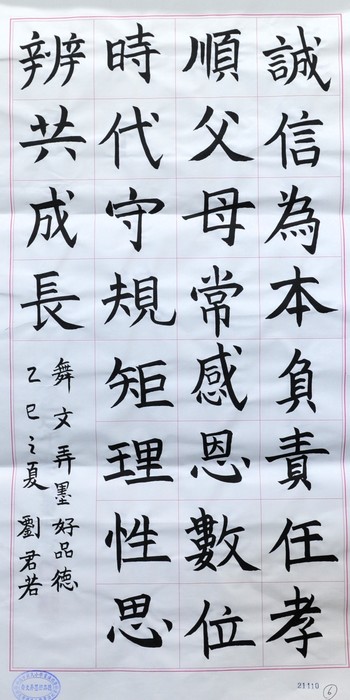 誠信為本負責任孝
順父母常感恩數位
時代守規矩理性思
辨共成長
舞文弄墨好品德
乙巳之夏 劉君若
21110
6